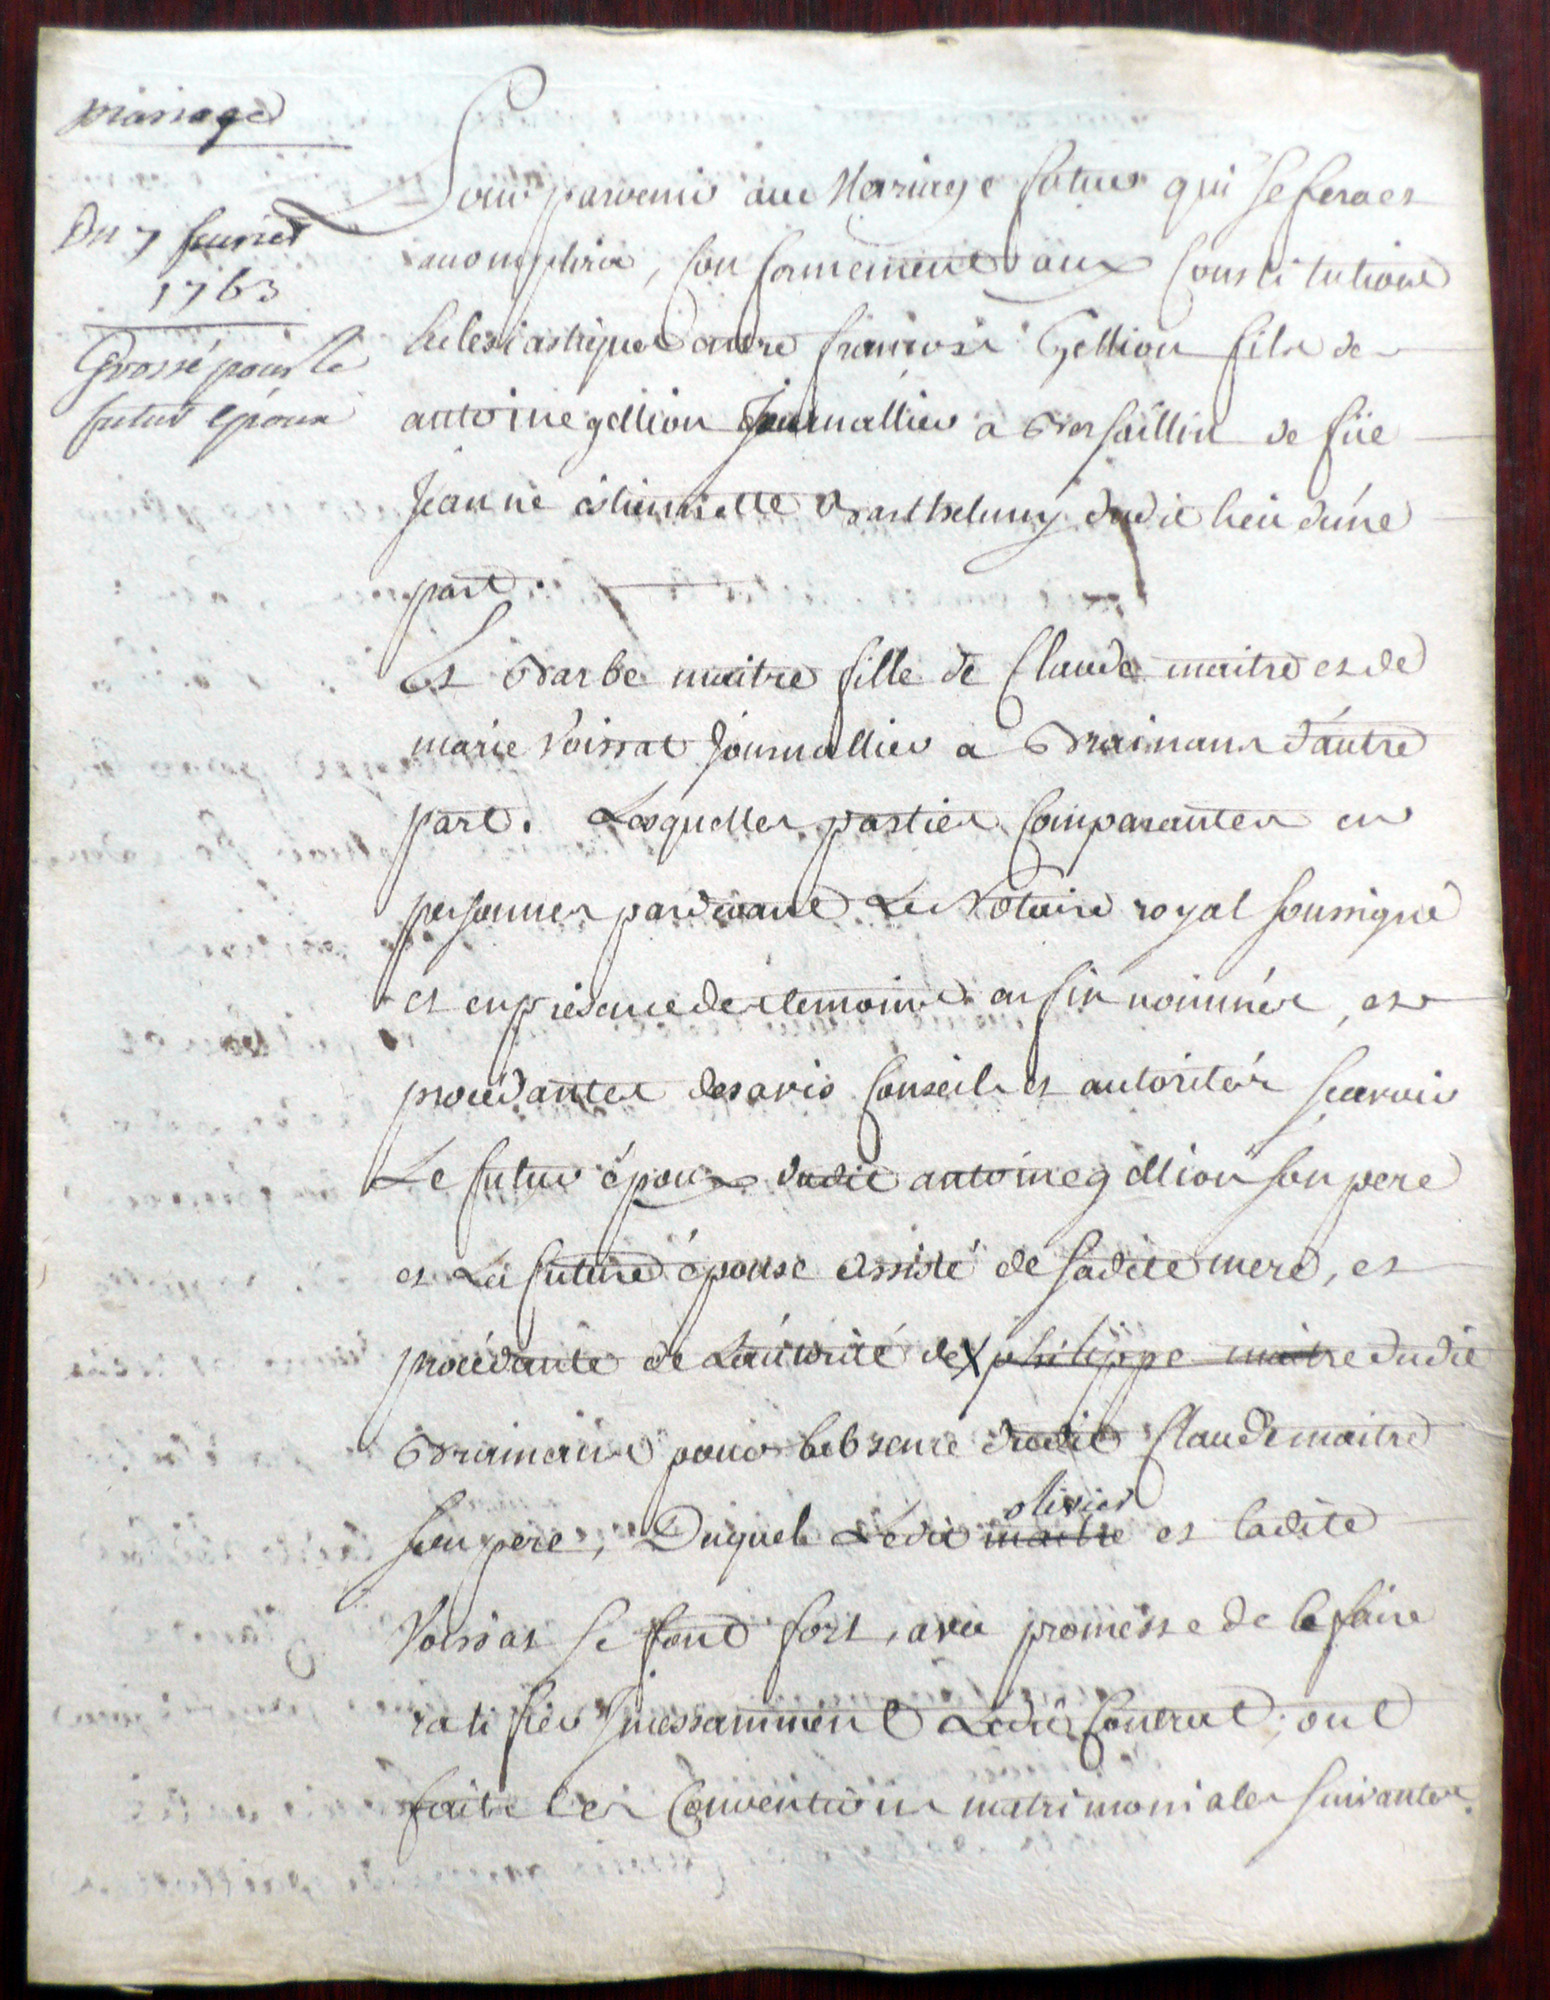 mariage
Du 7 fevrier
1763
Grossé pour le
futur époux
Pour parvenir au Mariage futur qui se fera et
accomplira, conformement aux Constitutions
Eclesiastiques entre francois Gellion fils de
antoine gellion Journallier a Versaillin de füe
Jeanne estiennette Barthelemy dudit lieu d'úne
part.
Et Barbe maitre fille de Claude maitre et de
marie Voissat Journallier a Brainans d'áutre
part. Lesquelles parties Comparantes en
personnes pardevant Le Notaire royal soussigné
et en présence des temoins en fin nommés, et
procédantes des avis Conseils et autorités scavoir
Le futur époux dudit antoine gellion son pere
et La future épouse assisté de sadite mere, et
procédante de L'autorité de X philippe maitre dudit
Brainans pour l'absence dudit Claude maitre
son pere, Duquel Ledit maitre et ladite
olivier
Voissat se font fort, avec promesse de le faire
ratifier Incessamment Ledit Contrat, ont
faits les Conventions matrimoniales suivantes.